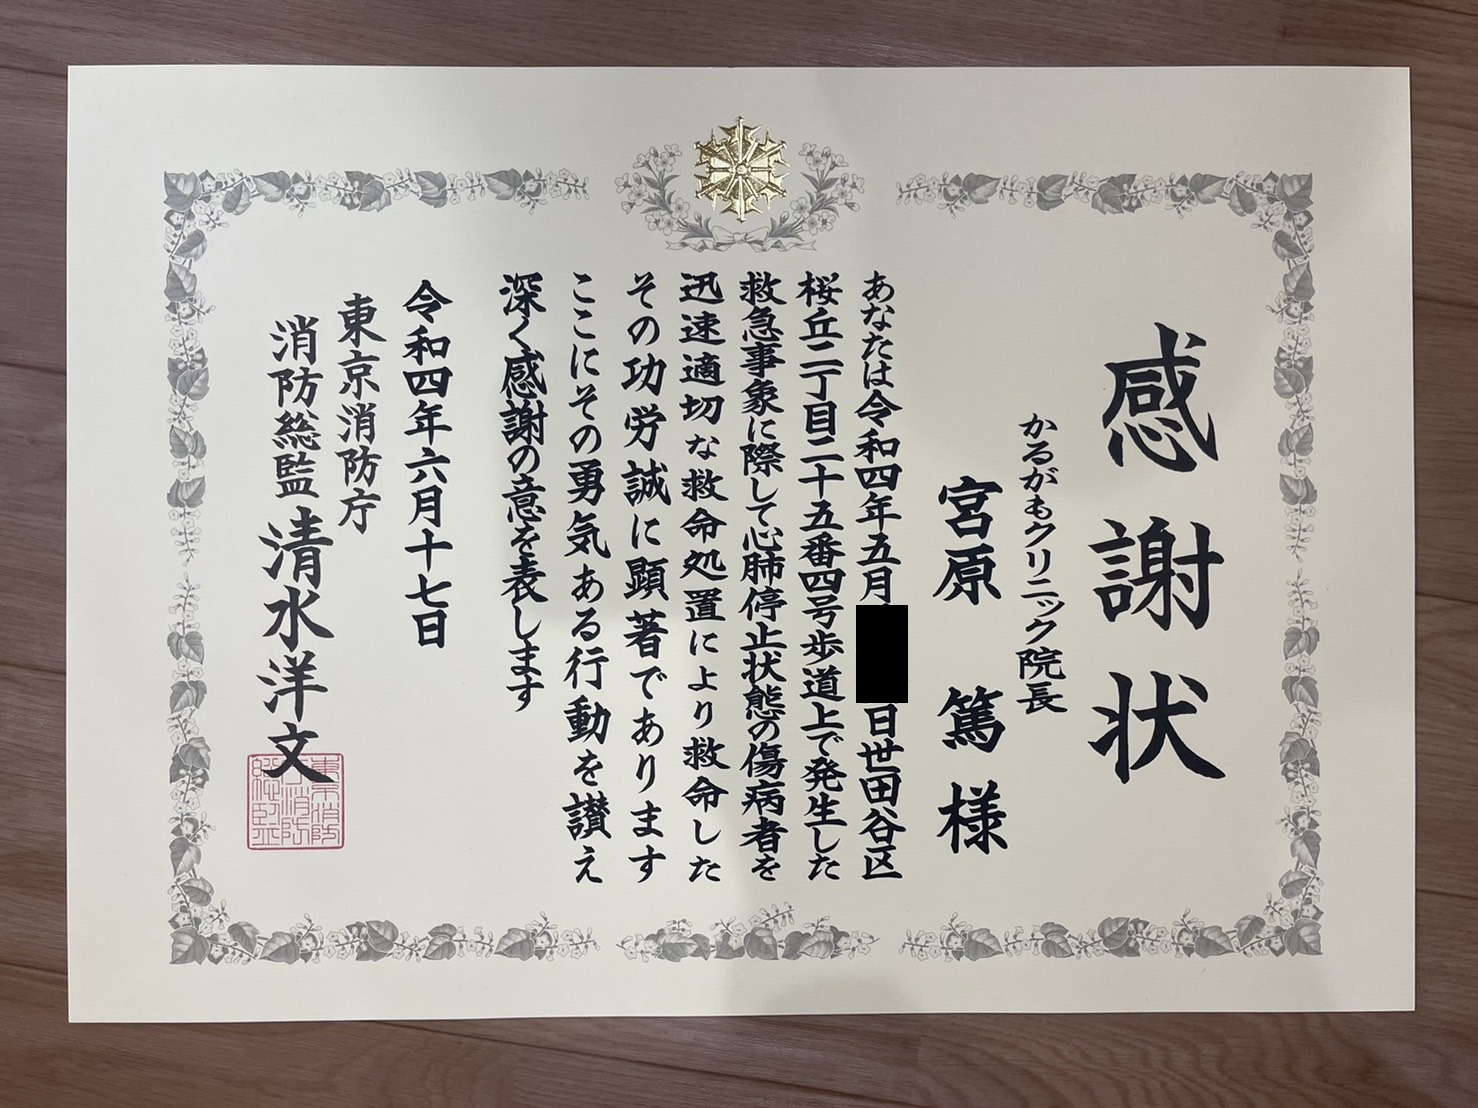 感謝状
かるがもクリニック院長
宮原 篤 様
あなたは令和四年五月日世田谷区
桜丘二丁目二十五番四号歩道上で発生した
救急事象に際して心肺停止状態の傷病者を
迅速適切な救命処置により救命した
その功労誠に顕著であります
ここにその勇気ある行動を讃え
深く感謝の意を表します
令和四年六月十七日
東京消防庁
消防総監 清水洋文
東京消防
庁消防
総監